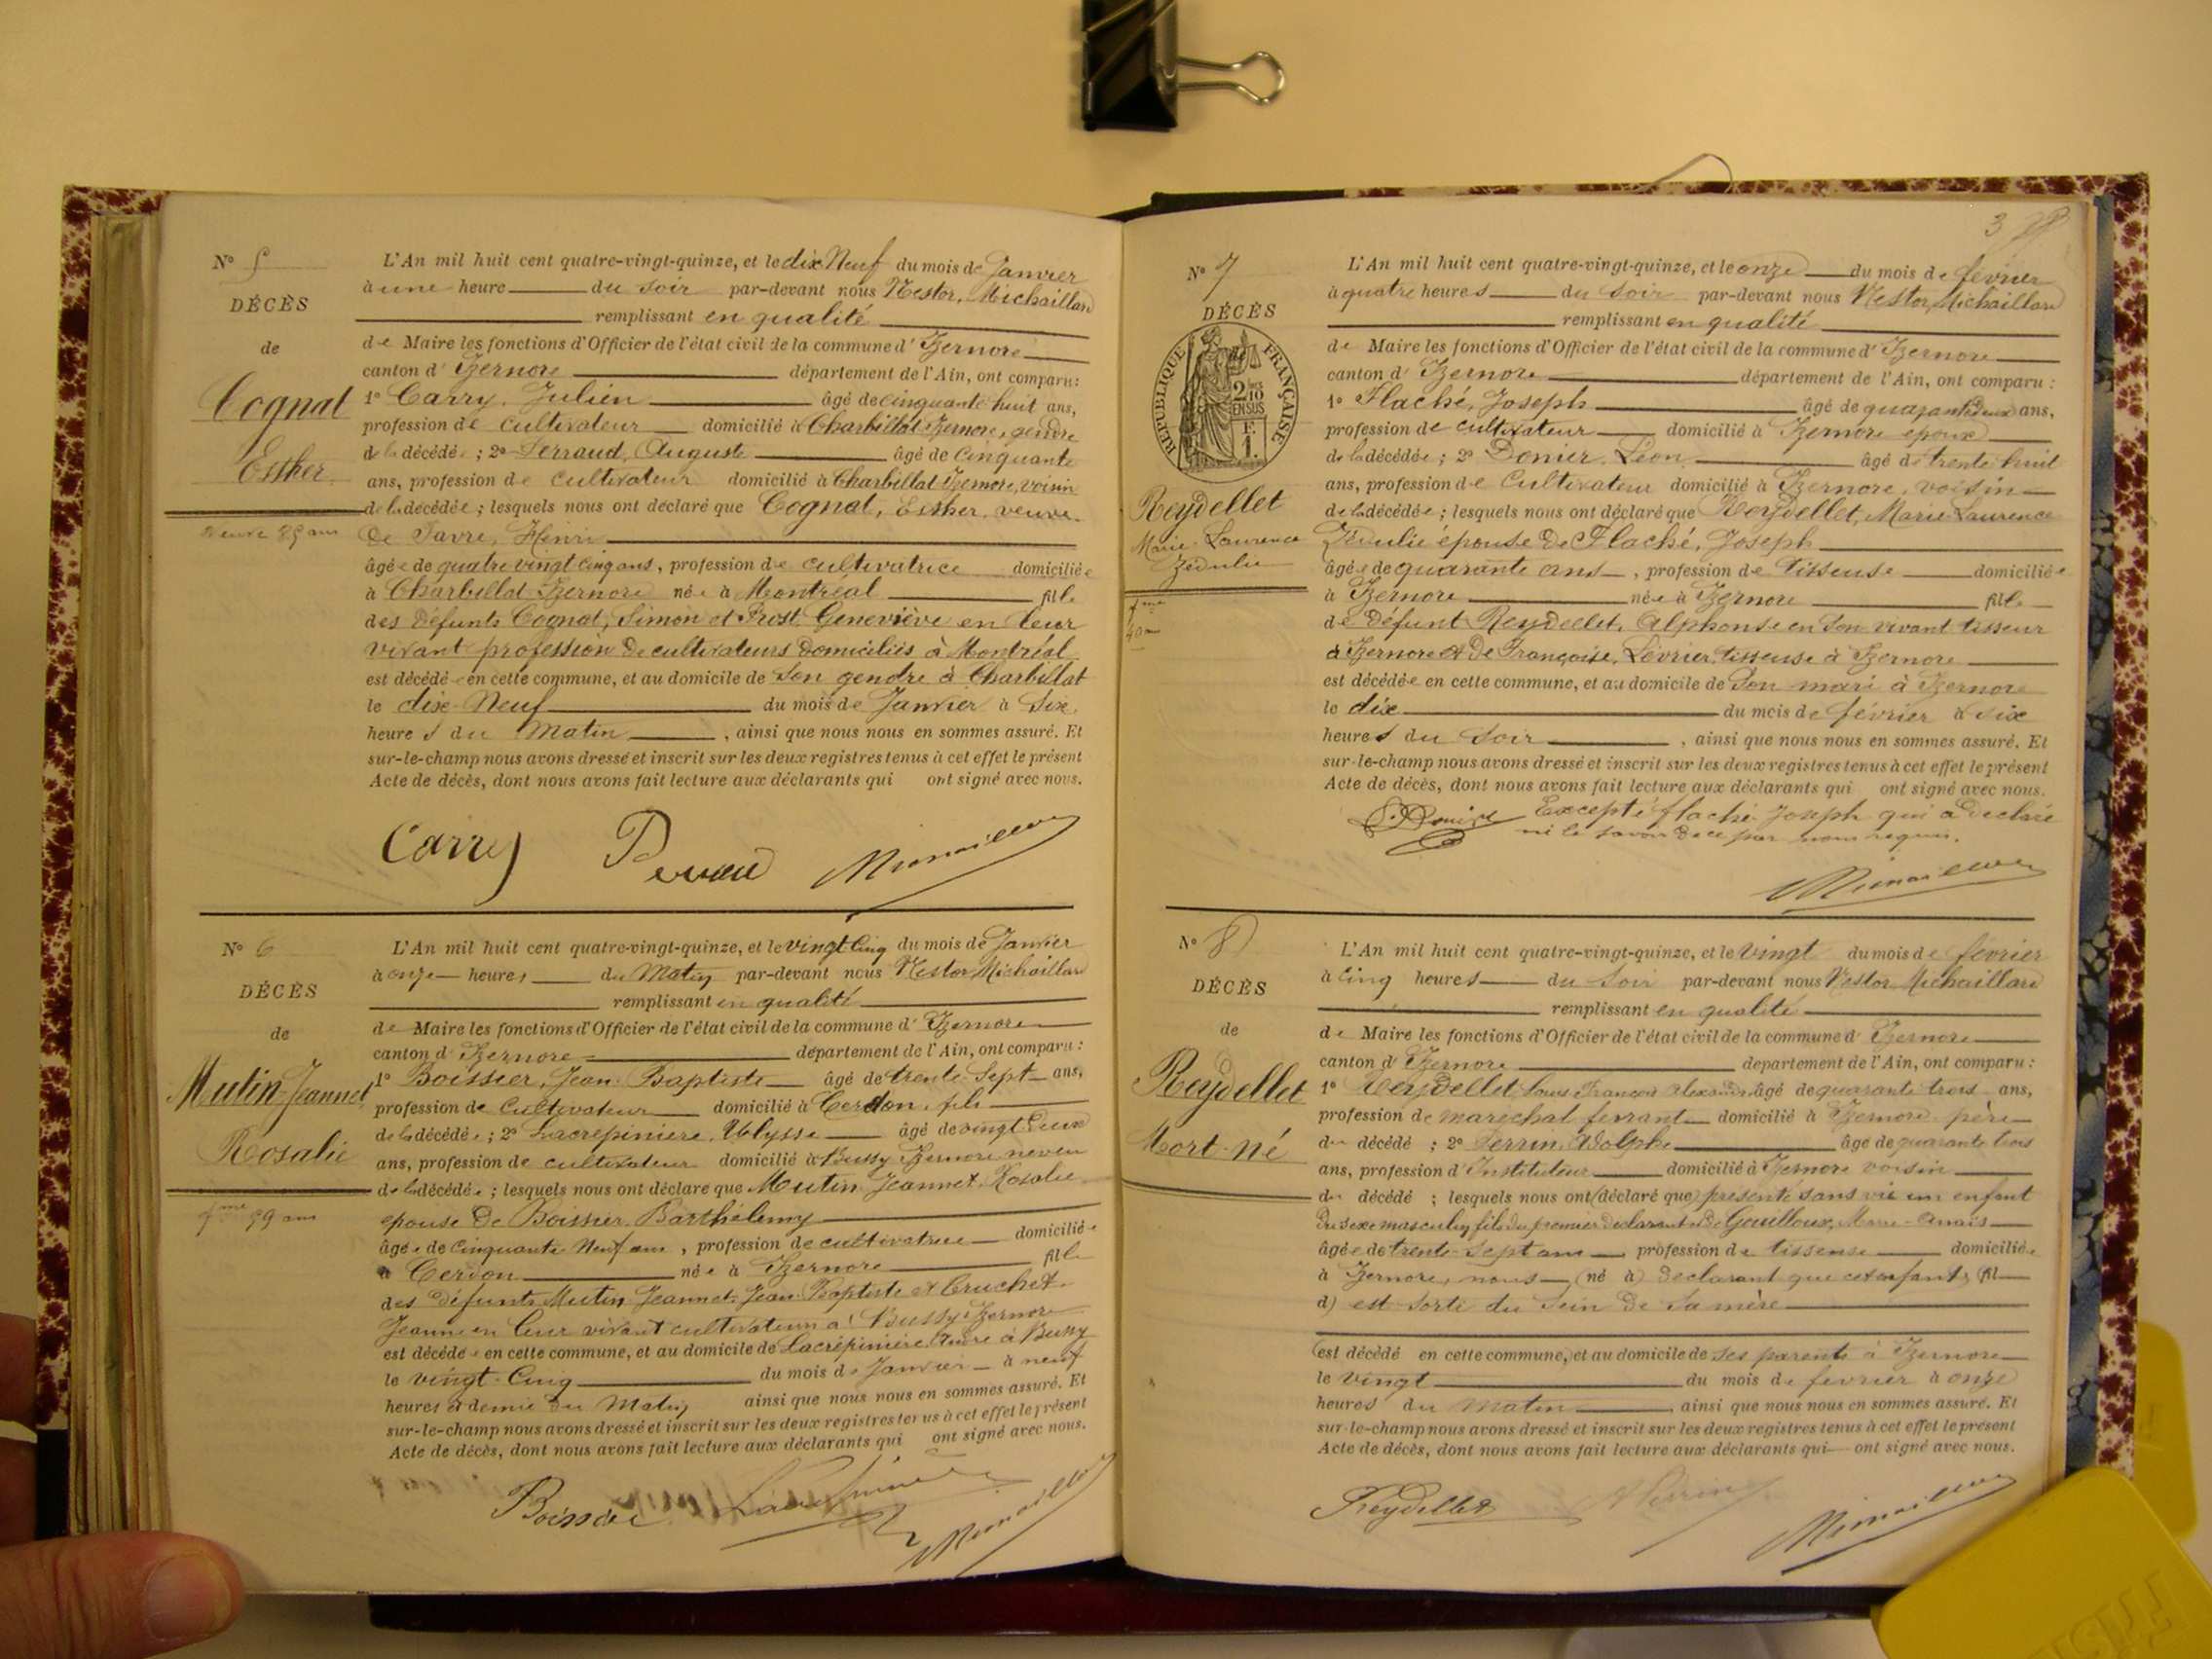 N° 5
DÉCÈS
de
Cognat
Esther
veuve 85 ans
L'An mil huit cent quatre-vingt-quinze, et le dix Neuf du mois de Janvier
à une heure du soir par-devant nous Nestor, Michaillard
remplissant en qualité
de Maire les fonctions d'Officier de l'état civil de la commune d' Izernore
canton d' Izernore département de l'Ain, ont comparu :
1° Carry, Julien âgé de cinquante huit ans,
profession de cultivateur domicilié à Charbillat Izernore, gendre
de la décédée ; 2° Perraud, Auguste âgé de Cinquante
ans, profession de cultivateur domicilié à Charbillat Izernore, voisin
de la décédée ; lesquels nous ont déclaré que Cognat, Esther, veuve
De Savre, Henri
âgée de quatre vingt cinq ans, profession de cultivatrice domiciliée
à Charbillat Izernore née à Montréal fille
des défunts Cognat, Simon et Prost Geneviève en leur
vivant profession de cultivateurs domiciliés à Montréal
est décédée en cette commune, et au domicile de son gendre à Charbillat
le dix-Neuf du mois de Janvier à Six
heures du Matin, ainsi que nous nous en sommes assuré. Et
sur-le-champ nous avons dressé et inscrit sur les deux registres tenus à cet effet le présent
Acte de décès, dont nous avons fait lecture aux déclarants qui ont signé avec nous.
Carry Perraud Michaillard
N° 6
DÉCÈS
de
Mutin-Jeannet
Rosalie
fme 59 ans
L'An mil huit cent quatre-vingt-quinze, et le vingt Cinq du mois de Janvier
à onze heures du Matin par-devant nous Nestor Michaillard
remplissant en qualité
de Maire les fonctions d'Officier de l'état civil de la commune d' Izernore
canton d' Izernore département de l'Ain, ont comparu :
1° Boissier, Jean-Baptiste âgé de trente-Sept ans,
profession de Cultivateur domicilié à Cerdon, fils
de la décédée ; 2° Lacrepiniere, Ulysse âgé de vingt Deux
ans, profession de cultivateur domicilié à Bussy Izernore neveu
de la décédée ; lesquels nous ont déclaré que Mutin Jeannet, Rosalie
épouse De Boissier, Barthélemy
âgée de Cinquante Neuf ans, profession de cultivatrice domiciliée
à Cerdon née à Izernore fille
des défunts Mutin Jeannet, Jean-Baptiste et Cruchet
Jeanne en leur vivant cultivateurs à Bussy Izernore
est décédée en cette commune, et au domicile de Lacrépinière, André à Bussy
le vingt-Cinq du mois de Janvier à neuf
heures et demie du Matin ainsi que nous nous en sommes assuré. Et
sur-le-champ nous avons dressé et inscrit sur les deux registres tenus à cet effet le présent
Acte de décès, dont nous avons fait lecture aux déclarants qui ont signé avec nous.
Boissier Michaillard
N° 7
DÉCÈS
de
RÉPUBLIQUE FRANÇAISE
2/10 EN SUS
F. 1.
Reydellet
Marie-Laurence
Zédulie
fme
40 ans
L'An mil huit cent quatre-vingt-quinze, et le onze du mois de février
à quatre heures du Soir par-devant nous Nestor, Michaillard
remplissant en qualité
de Maire les fonctions d'Officier de l'état civil de la commune d' Izernore
canton d' Izernore département de l'Ain, ont comparu :
1° Flaché, Joseph âgé de quarante deux ans,
profession de cultivateur domicilié à Izernore époux
de la décédée ; 2° Donier, Léon âgé de trente huit
ans, profession de Cultivateur domicilié à Izernore, voisin
de la décédée ; lesquels nous ont déclaré que Reydellet, Marie-Laurence
Zédulie épouse De Flaché, Joseph
âgée de quarante ans, profession de tisseuse domiciliée
à Izernore née à Izernore fille
de défunt Reydellet, Alphonse en son vivant tisseur
à Izernore et De Françoise, Levrier, tisseuse à Izernore
est décédée en cette commune, et au domicile de Son mari à Izernore
le dix du mois de février à six
heures du Soir, ainsi que nous nous en sommes assuré. Et
sur-le-champ nous avons dressé et inscrit sur les deux registres tenus à cet effet le présent
Acte de décès, dont nous avons fait lecture aux déclarants qui ont signé avec nous.
Excepté flaché Joseph qui a déclaré
ne le savoir de ce par nous requis.
Michaillard
N° 8
DÉCÈS
de
Reydellet
Mort-né
L'An mil huit cent quatre-vingt-quinze, et le Vingt du mois de février
à Cinq heures du Soir par-devant nous Nestor Michaillard
remplissant en qualité
de Maire les fonctions d'Officier de l'état civil de la commune d' Izernore
canton d' Izernore département de l'Ain, ont comparu :
1° Reydellet Louis François Alexandre âgé de quarante trois ans,
profession de maréchal ferrant domicilié à Izernore père
du décédé ; 2° Perrin, Adolphe âgé de quarante trois
ans, profession d' Instituteur domicilié à Izernore voisin
du décédé ; lesquels nous ont (déclaré que) présenté sans vie un enfant
du sexe masculin fils du premier déclarant et de Gouilloux, Marie-Anaïs
âgée de trente-Sept ans profession de tisseuse domiciliée
à Izernore, nous (né à) déclarant que cet enfant (fil
d) est sorti du sein de sa mère
(est décédé en cette commune,) et au domicile de ses parents à Izernore
le vingt du mois de février à onze
heures du matin ainsi que nous nous en sommes assuré. Et
sur-le-champ nous avons dressé et inscrit sur les deux registres tenus à cet effet le présent
Acte de décès, dont nous avons fait lecture aux déclarants qui ont signé avec nous.
Reydellet Perrin Michaillard